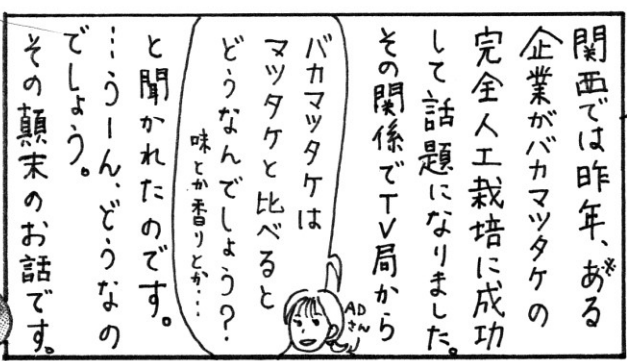 関西では昨年、ある※
企業がバカマツタケの
完全人工栽培に成功
して話題になりました。
その関係でTV局から
バカマツタケは
マツタケと比べると
どうなんでしょう?
味とか香りとか…
ADさん
と聞かれたのです。
…うーん、どうなの
でしょう。
その顛末のお話です。